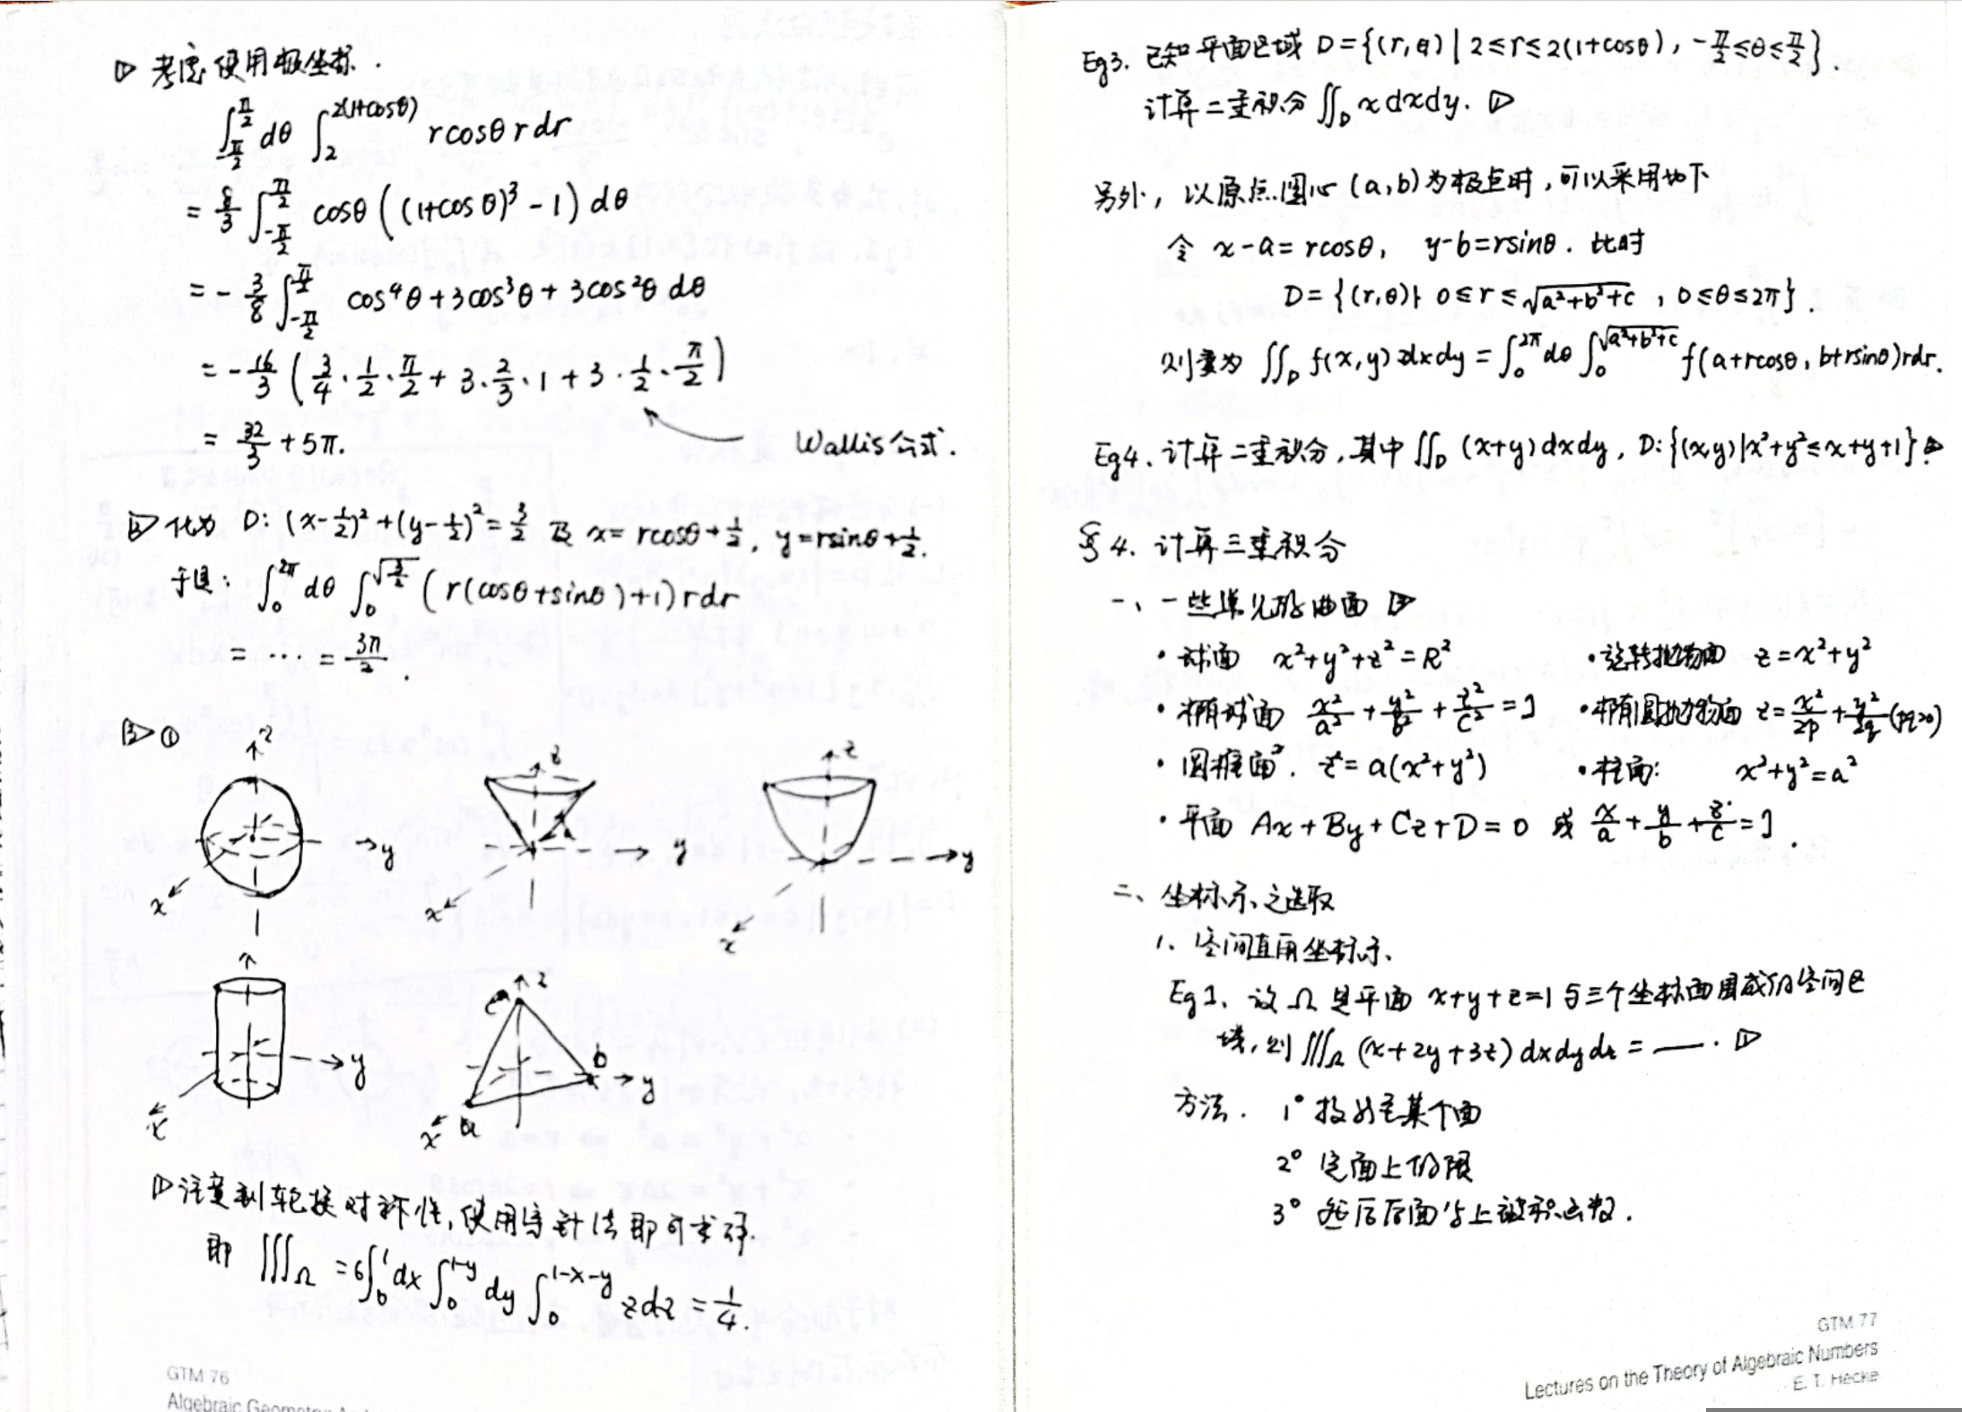 ▷ 考虑使用极坐标.
∫_{-π/2}^{π/2} dθ ∫_2^{2(1+cosθ)} rcosθ r dr
= 8/3 ∫_{-π/2}^{π/2} cosθ ( (1+cosθ)³ - 1 ) dθ
= - 3/8 ∫_{-π/2}^{π/2} cos⁴θ + 3cos³θ + 3cos²θ dθ
= - 16/3 ( 3/4 · 1/2 · π/2 + 3 · 2/3 · 1 + 3 · 1/2 · π/2 )
= 32/3 + 5π.
Wallis公式.
▷ 化为 D: (x-1/2)² + (y-1/2)² = 3/2 及 x = rcosθ + 1/2, y = rsinθ + 1/2.
于是: ∫_0^{2π} dθ ∫_0^{√(3/2)} ( r(cosθ+sinθ)+1 ) r dr
= ··· = 3π/2.
▷ ①
z
y
x
z
y
x
z
y
x
y
x
z
c
b
y
x
a
▷ 注意到轮换对称性, 使用等计法即可求得.
即 ∫∫∫_Ω = 6∫_0^1 dx ∫_0^{1-y} dy ∫_0^{1-x-y} z dz = 1/4.
GTM 76
Eg3. 已知平面区域 D = {(r,θ) | 2≤r≤2(1+cosθ), -π/2≤θ≤π/2}
计算二重积分 ∫∫_D x dxdy. ▷
另外, 以原点圆心 (a,b) 为极点时, 可以采用如下
令 x-a = rcosθ, y-b = rsinθ. 此时
D = {(r,θ) | 0≤r≤√(a²+b²+c), 0≤θ≤2π}.
则变为 ∫∫_D f(x,y) dxdy = ∫_0^{2π} dθ ∫_0^{√(a²+b²+c)} f(a+rcosθ, b+rsinθ) r dr.
Eg4. 计算二重积分, 其中 ∫∫_D (x+y) dxdy, D: {(x,y)|x²+y²≤x+y+1}. ▷
§4. 计算三重积分
一、一些常见的曲面 ▷
· 球面 x²+y²+z² = R² · 旋转抛物面 z = x²+y²
· 椭球面 x²/a² + y²/b² + z²/c² = 1 · 椭圆抛物面 z = x²/2p + y²/2q (pq>0)
· 圆锥面. z² = a(x²+y²) · 柱面: x²+y² = a²
· 平面 Ax + By + Cz + D = 0 或 x/a + y/b + z/c = 1.
二、坐标系之选取
1. 空间直角坐标系.
Eg1. 设 Ω 是平面 x+y+z=1 与三个坐标面围成的空间区
域, 则 ∫∫∫_Ω (x+2y+3z) dxdydz = —. ▷
方法. 1° 投影至某个面
2° 定面上的限
3° 然后后面写上被积函数.
GTM 77
Lectures on the Theory of Algebraic Numbers
E. T. Hecke